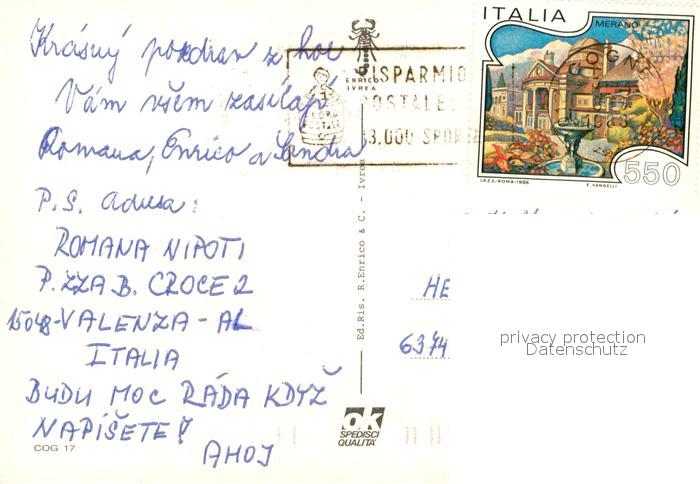 Krásný pozdrav z hor
Vám všem zasílají
Romana, Enrico a Sandra
P.S. adresa:
ROMANA NIPOTI
P.ZZA B. CROCE 2
15048-VALENZA-AL
ITALIA
BUDU MOC RÁDA KDYŽ
NAPÍŠETE!
AHOJ
COG 17
ENRICO
IVREA
RISPARMIO
POSTALE:
13.000 SPORT
ITALIA
MERANO
COGNE
I.P.Z.S.-ROMA-1986
E. VANGELLI
550
Ed. Ris. R. Enrico & C. - Ivrea
HE
6374
privacy protection
Datenschutz
ok
SPEDISCI
QUALITA'